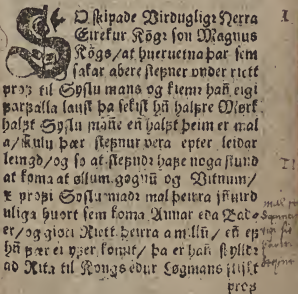 SO skipade Virduglige Herra
Eirekur Kögr son Magnus
Kögs/ at huersetna þar sem
sakar abere stefner vnder riett
prof til Syslu mans og kiemr hañ eigi
parfalla laust þa sekist hñ halfre Mørk
halft Syslu mañe eñ halft þeim er mal
a/ skulu þær stefnur vera epter leidar
leingd/ og so at stefndr hafe noga stund
at koma at øllum gøgnũ og Vitnum/
proft Syslumadr mal þeirra jñvird
uliga huort sem koma Annar eda Bad
er/ og giøri Riett þeirra a millũ/ eñ ef
hñ þær ei yfer komit/ þa er hañ skyldr
ad Rita til Kongs edur Løgmans slijkt
prof